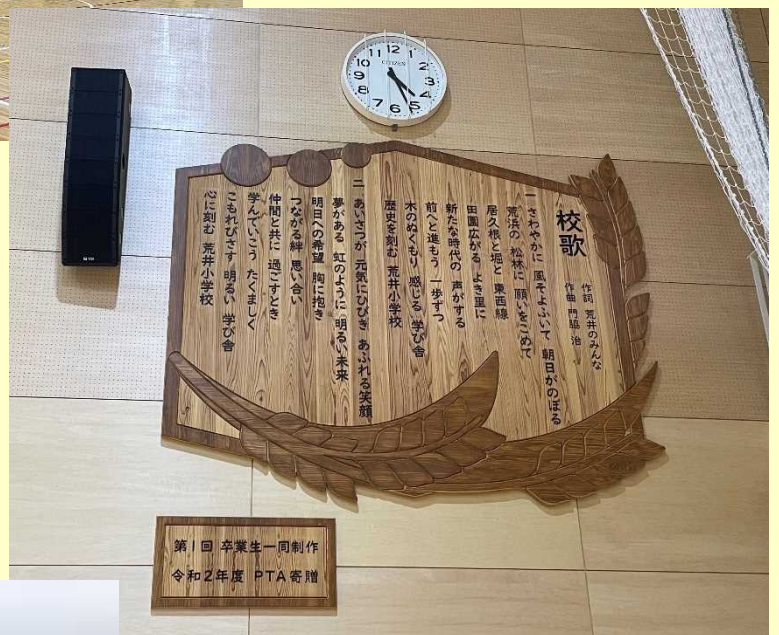 校歌
作詞 荒井のみんな
作曲 門脇 治
一 さわやかに 風そよふいて 朝日がのぼる
荒浜の 松林に 願いをこめて
居久根と堀と 東西線
田園広がる よき里に
新たな時代の 声がする
前へと進もう 一歩ずつ
木のぬくもり 感じる 学び舎
歴史を刻む 荒井小学校
二 あいさつが 元気にひびき あふれる笑顔
夢がある 虹のように 明るい未来
明日への希望 胸に抱き
つながる絆 思い合い
仲間と共に 過ごすとき
学んでいこう たくましく
こもれびさす 明るい 学び舎
心に刻む 荒井小学校
CITIZEN
12
1
2
3
4
5
6
7
8
9
10
11
第1回 卒業生一同制作
令和2年度 PTA寄贈